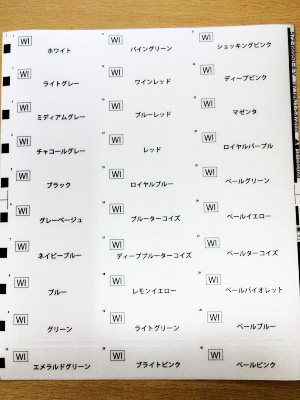 WI ホワイト
WI パイングリーン
WI ショッキングピンク
WI ライトグレー
WI ワインレッド
WI ディープピンク
WI ミディアムグレー
WI ブルーレッド
WI マゼンタ
WI チャコールグレー
WI レッド
WI ロイヤルパープル
WI ブラック
WI ロイヤルブルー
WI ペールグリーン
WI グレーベージュ
WI ブルーターコイズ
WI ペールイエロー
WI ネイビーブルー
WI ディープブルーターコイズ
WI ペールターコイズ
WI ブルー
WI レモンイエロー
WI ペールバイオレット
WI グリーン
WI ライトグリーン
WI ペールブルー
WI エメラルドグリーン
WI ブライトピンク
WI ペールピンク